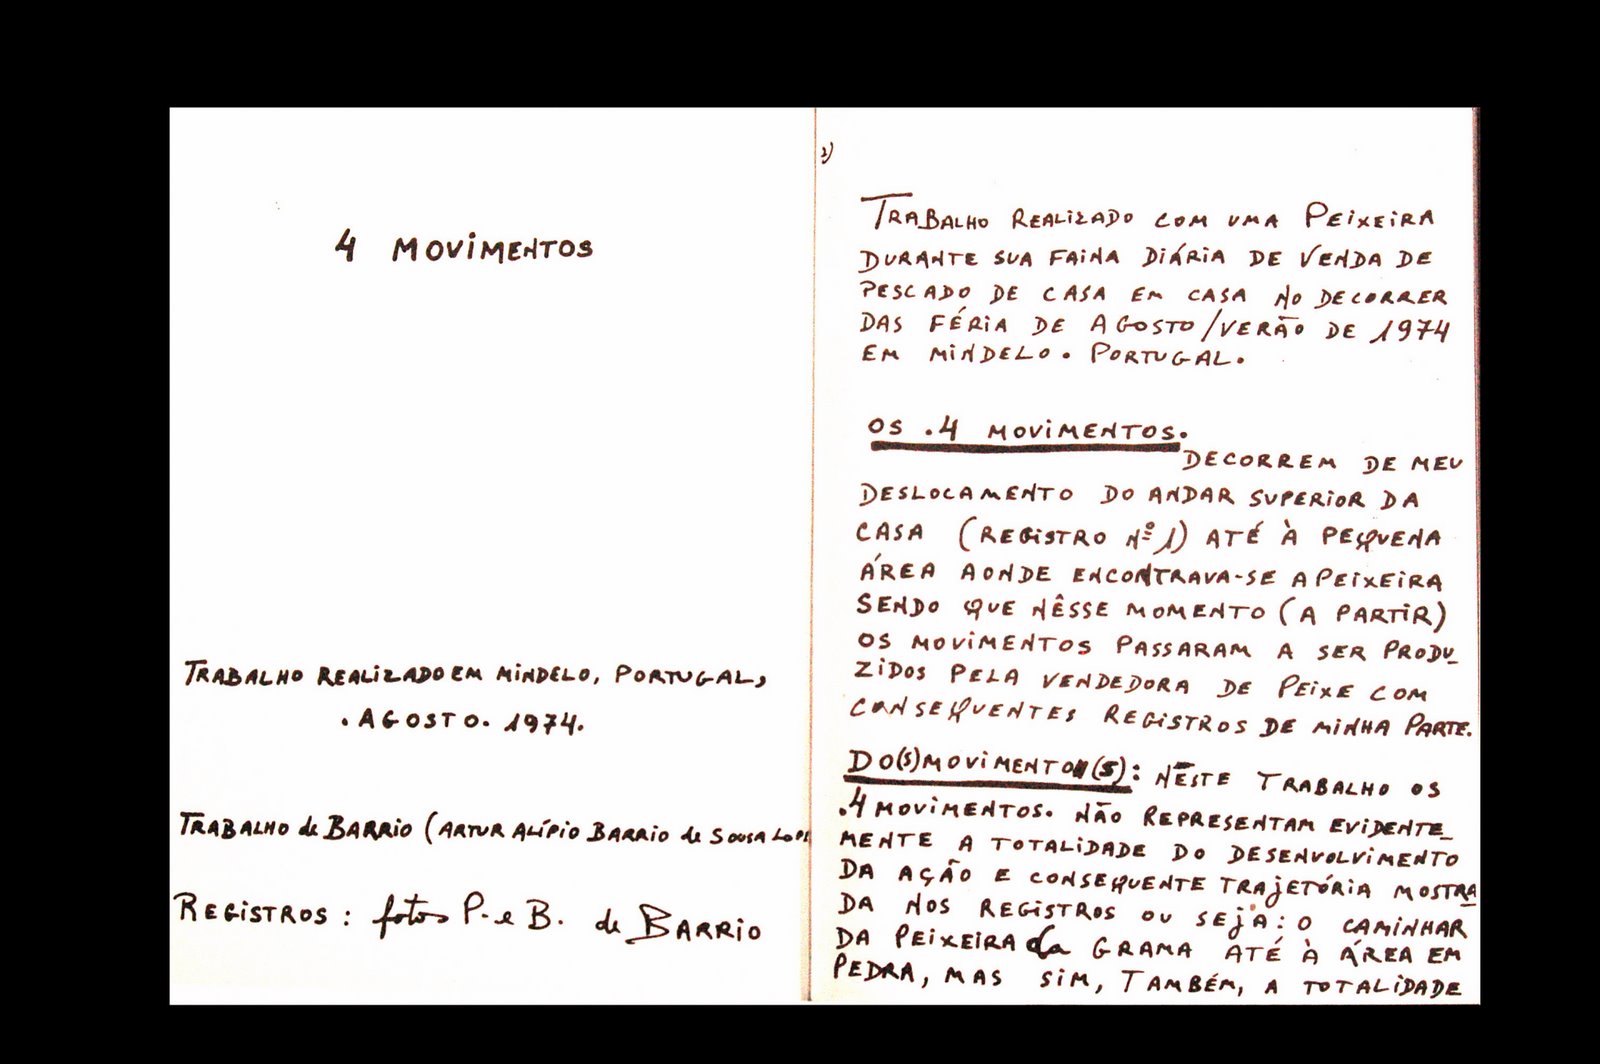 4 MOVIMENTOS
TRABALHO REALIZADO EM MINDELO, PORTUGAL,
. AGOSTO. 1974.
TRABALHO de BARRIO (ARTUR ALÍPIO BARRIO de SOUSA LOPE
REGISTROS : fotos P. e B. de BARRIO
2)
TRABALHO REALIZADO COM UMA PEIXEIRA
DURANTE SUA FAINA DIÁRIA DE VENDA DE
PESCADO DE CASA EM CASA NO DECORRER
DAS FÉRIA DE AGOSTO/VERÃO DE 1974
EM MINDELO. PORTUGAL.
OS .4 MOVIMENTOS.
DECORREM DE MEU
DESLOCAMENTO DO ANDAR SUPERIOR DA
CASA (REGISTRO Nº 1) ATÉ À PEQUENA
ÁREA AONDE ENCONTRAVA-SE A PEIXEIRA
SENDO QUE NÊSSE MOMENTO (A PARTIR)
OS MOVIMENTOS PASSARAM A SER PRODU_
ZIDOS PELA VENDEDORA DE PEIXE COM
CONSEQUENTES REGISTROS DE MINHA PARTE.
DO(S) MOVIMENTO(S): NESTE TRABALHO OS
.4 MOVIMENTOS. NÃO REPRESENTAM EVIDENTE_
MENTE A TOTALIDADE DO DESENVOLVIMENTO
DA AÇÃO E CONSEQUENTE TRAJETÓRIA MOSTRA_
DA NOS REGISTROS OU SEJA: O CAMINHAR
DA PEIXEIRA da GRAMA ATÉ À ÁREA EM
PEDRA, MAS SIM, TAMBÉM, A TOTALIDADE